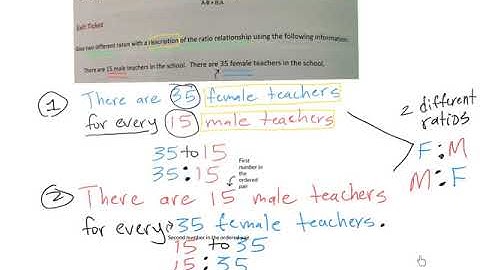 A:B ≠ B:A
Exit Ticket
Give two different ratios with a description of the ratio relationship using the following information:
There are 15 male teachers in the school. There are 35 female teachers in the school.
① There are 35 female teachers
for every 15 male teachers
2 different
ratios
35 to 15
35:15
First
number in
the
ordered
pair
F:M
M:F
② There are 15 male teachers
for every 35 female teachers.
Second number in the ordered pair
15 to 35
15:35